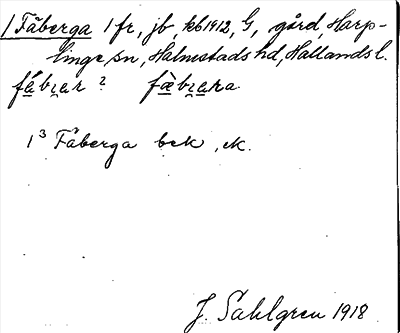 1 Fåberga 1 fr, jb, kb 1912, G, gård, Harp-
linge sn, Halmstads hd, Hallands l.
1³ Fåberga bek, ek.
J. Sahlgren 1918